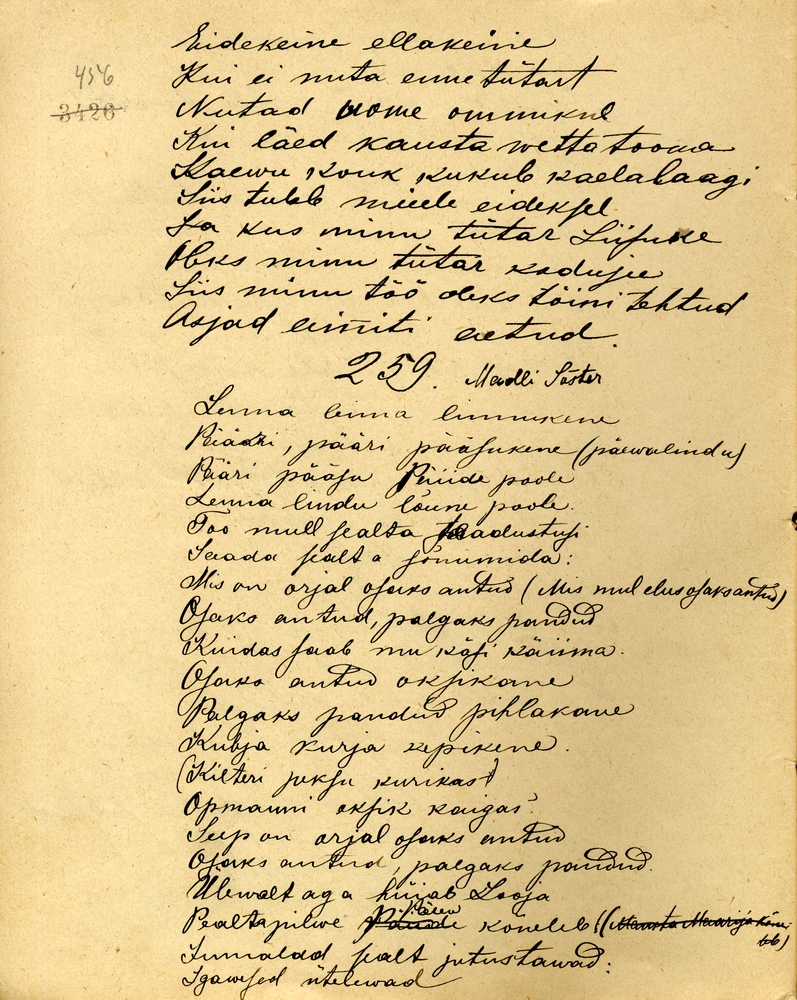 Eidekeine ellakeine
456
Kui ei nuta enne tütart
3426
Nutad home ommikul
Kui läed kausta wetta tooma
Kaewu kouk kukub kaelalaagi
Siis tuleb meele eideksel
Ja kus minu tütar Liisuke
Oleks minu tütar kodujee
Siis minu töö oleks töini tehtud
Asjad eimiti aetud.
259. Madli Söster
Lenna lenna linnukene
Pääri, pääri pääsukene (päewalindu)
Pääri pääsu Püüde poole
Lenna lindu lõune poole.
Too mull sealta taadustusi
Saada sealta sõnumida:
Mis on orjal osaks antud (Mis mul elus osaks antud)
Osaks antud, palgaks pandud
Kuidas saab mu käsi käiima.
Osaks antud oksikane
Palgaks pandud pihlakane
Kubja kurja kepikene.
(Kilteri jukju kurikas)
Opmanni oksik kaigas.
Seep on orjal osaks antud
Osaks antud, palgaks pandud.
Ülewalt aga hüiab Looja
Pealta pilwe kõneleb! (Maasta Maarija kõneleb)
Jumalad sealt jutustawad:
Igawesed ütelewad